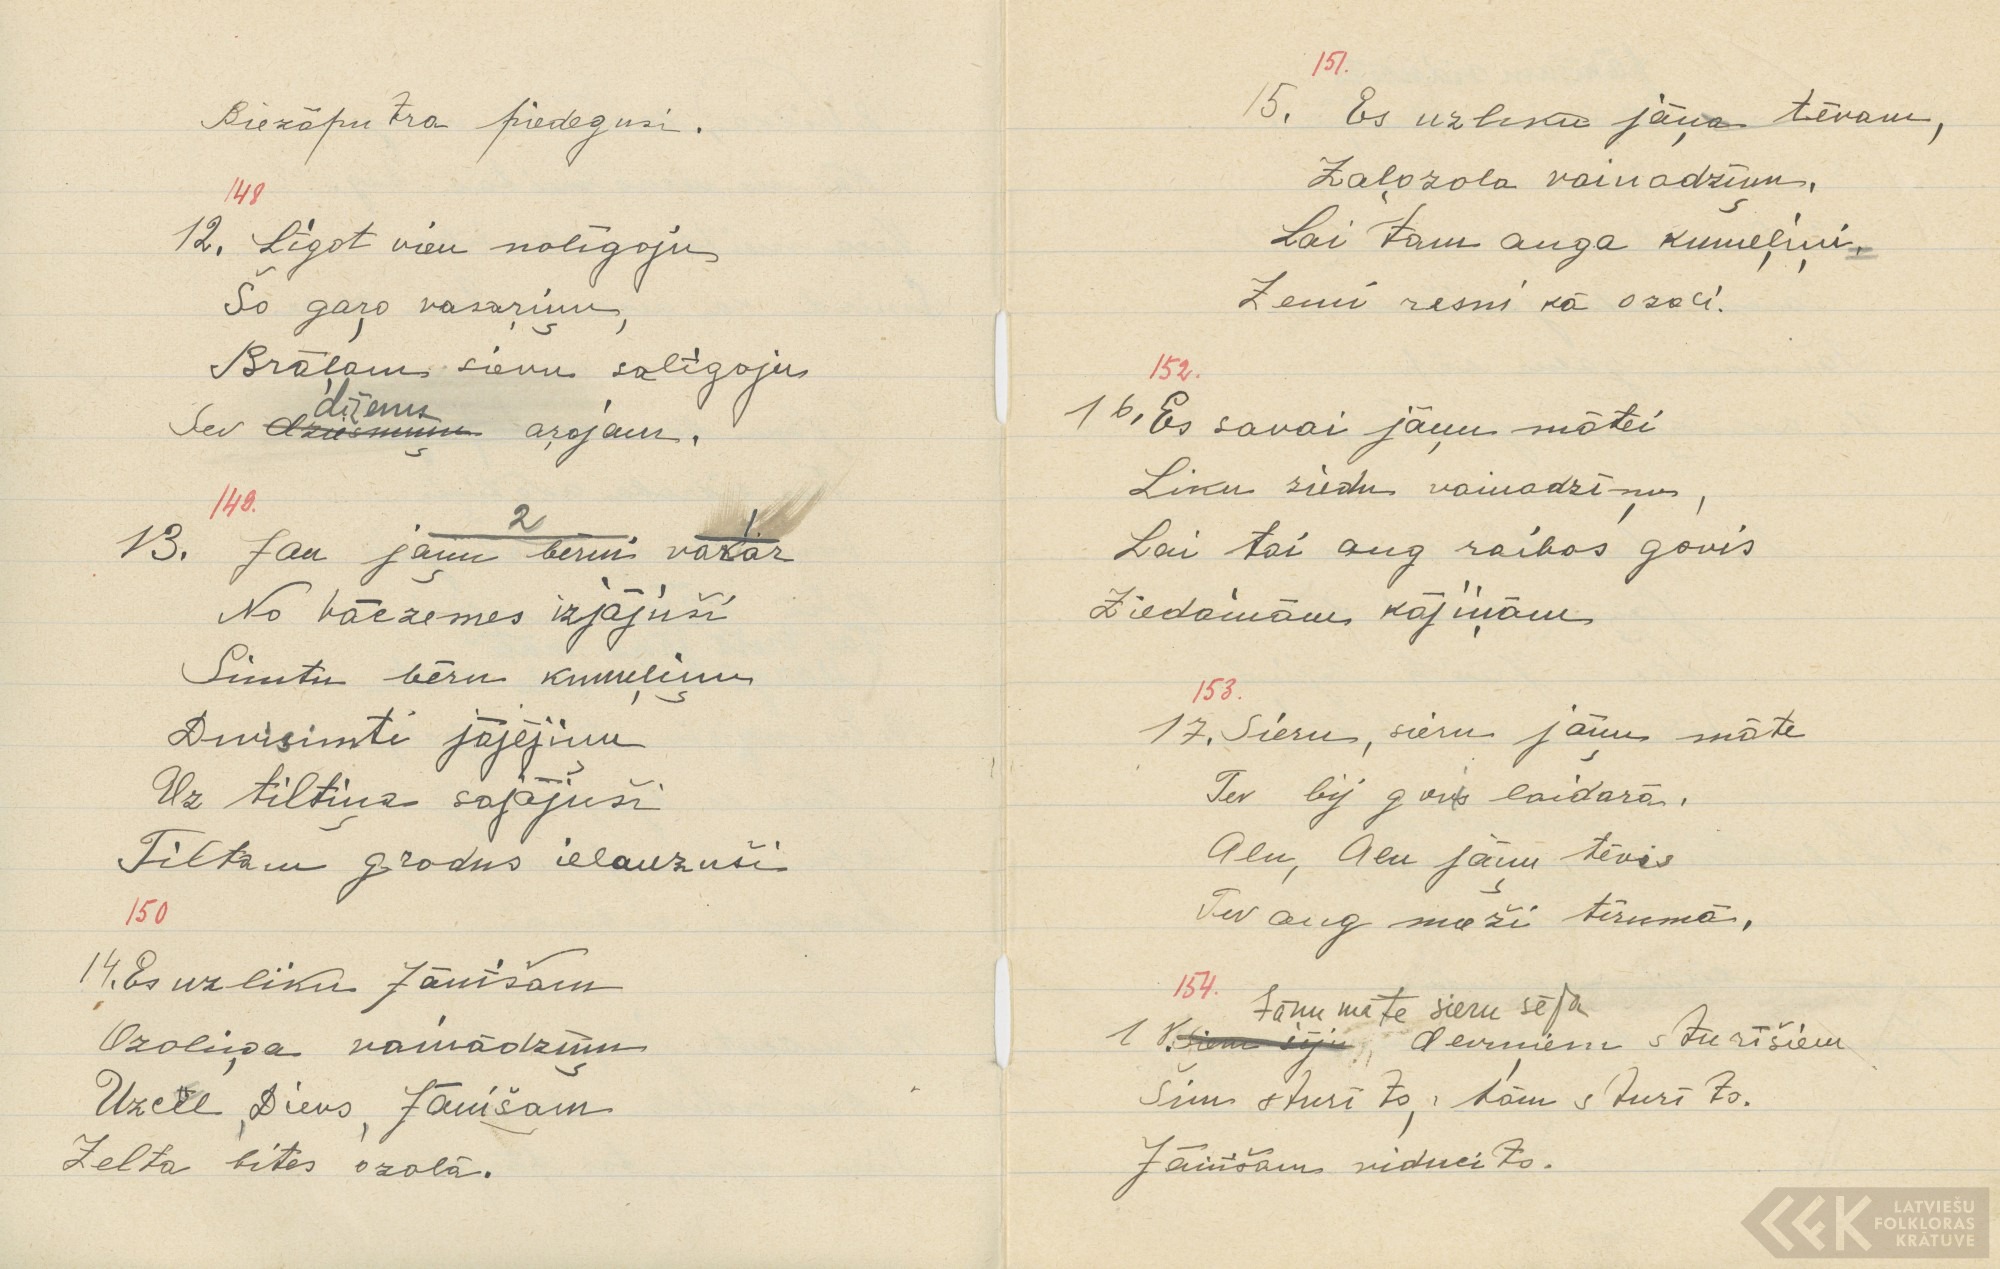 Biezāputra piedegusi.
148
12. Līgot vien nolīgoju
Šo gaŗo vasariņu,
Brāļam sievu salīgoju
Sev diženu arājam.
149.
2 1
13. Jau jāņu bērni vakar
No vāczemes izjājuši
Simtu bēru kumeļiņu
Divisimti jājējiņu
Uz tiltiņa sajājuši
Tiltam grodus ielauzuši
150
14. Es uzliku Jānīšam
Ozoliņa vainādziņu
Uzcel, Dievs, Jānīšam
Zelta bites ozolā.
151.
15. Es uzliku jāņa tēvam,
Zaļozola vainadziņu,
Lai tam auga kumeļiņi,
Zemi resni kā ozoli.
152.
16. Es savai jāņu mātei
Liku ziedu vainadziņu,
Lai tai aug raibas govis
Ziedaināam kājiņām
153.
17. Sieru, sieru jāņu māte
Tev bij govis laidarā.
Alu, Alu jāņu tēvis
Tev aug mieži tīrumā.
154.
Jāņu māte sieru sēja
18. deviņiem stūrīšiem
Šim stūrīts, tām stūrīts.
Jānīšam viducīts.
LATVIEŠU
FOLKLORAS
KRĀTUVE